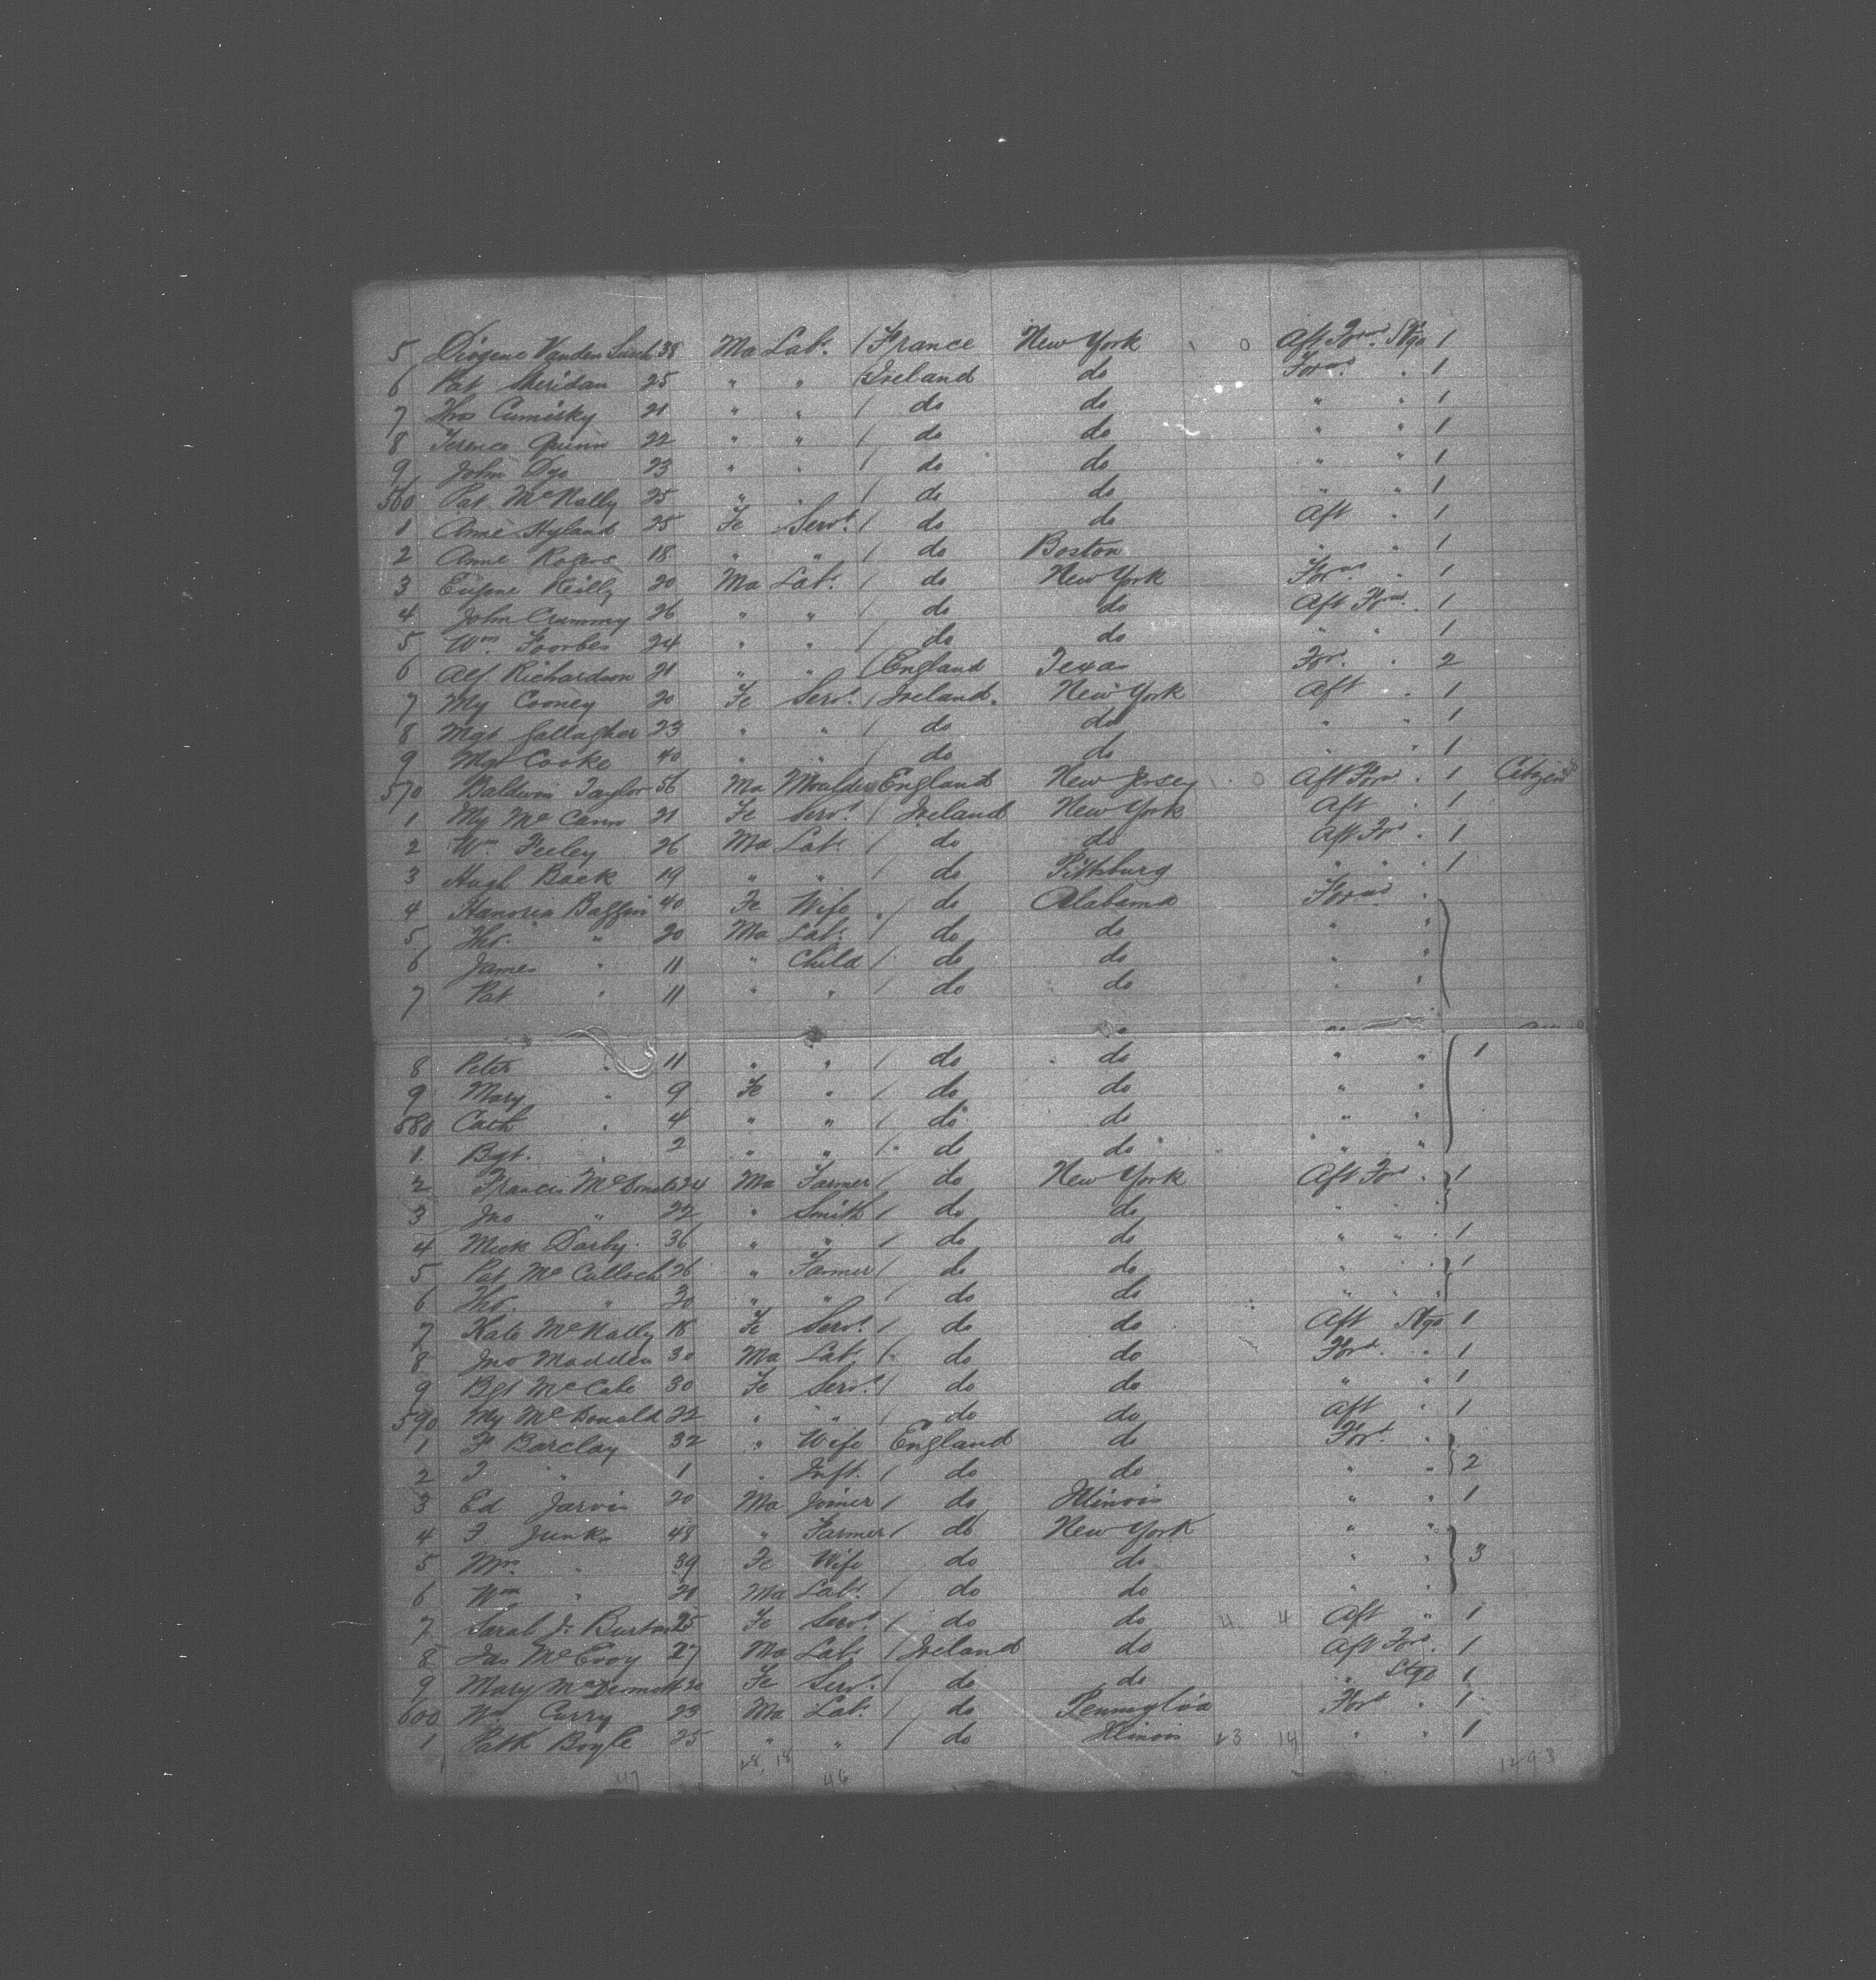 5 Diogene Vanden 38 Ma Lab. / France New York 0 Aft Forwd. Stge 1
6 Pat Sheridan 25 " " / Ireland do Forwd. " 1
7 Thos Cumisky 21 " " / do do " " 1
8 Terence Quinn 22 " " / do do " " 1
9 John Dye 23 " " / do do " " 1
560 Pat McNally 25 " " / do do " " 1
1 Anne Hyland 25 Fe Servt. / do do Aft " 1
2 Anne Rogers 18 " " / do Boston " " 1
3 Eugene Reilly 20 Ma Lab. / do New York Forwd " 1
4 John Crummy 26 " " / do do Aft Forwd. 1
5 Wm. Foorbes 24 " " / do do " " 1
6 Alf Richardson 21 " " / England Texas For. " 2
7 My Cooney 20 Fe Servt. / Ireland. New York Aft " 1
8 Mgt Gallagher 23 " " / do do " " 1
9 Mgt Cooke 40 " " / do do " " 1
570 Baldwin Taylor 56 Ma Moulder England New Jersey 0 Aft Forwd " 1 Citizen
1 My McCann 21 Fe Servt. / Ireland New York Aft " 1
2 Wm. Feeley 26 Ma Lab. / do do Aft For " 1
3 Hugh Back 19 " " / do Pittsburg " " 1
4 Hanoria Baffin 40 Fe Wife / do Alabama Forwd "
5 Tho. " 20 Ma Lab. / do do " "
6 James " 11 " Child / do do " "
7 Pat " 11 " " / do do " "
8 Peter " 11 " " / do do " " 1
9 Mary " 9 Fe " / do do " "
580 Cath " 4 " " / do do " "
1 Bgt. " 2 " " / do do " "
2 Francis McDonald 24 Ma Farmer / do New York Aft For " 1
3 Jno " 22 " Smith / do do " "
4 Mick Darby 36 " " / do do " " 1
5 Pat McCulloch 26 " Farmer / do do " " 1
6 Tho. " 20 " " / do do " " "
7 Kate McNally 18 Fe Servt. / do do Aft Stge 1
8 Jno Madden 30 Ma Lab. / do do Ford. " 1
9 Bgt McCabe 30 Fe Servt. / do do " " 1
590 My McDonald 22 " " / do do Aft " 1
1 F Barclay 32 " Wife England do Ford. "
2 J " 1 " Inft. / do do " " 2
3 Ed Jarvis 20 Ma Joiner / do Illinois " " 1
4 J Junks 48 " Farmer / do New York " "
5 Mrs. " 39 Fe Wife do do " " 3
6 Wm " 21 Ma Lab. / do do " "
7 Sarah J. Burton 25 Fe Servt. / do do 4 4 Aft " 1
8 Jas McEvoy 27 Ma Lab. / Ireland do Aft Ford. 1
9 Mary McDermott 20 Fe Servt. / do do " Stge 1
600 Wm Curry 23 Ma Lab. / do Pennsylva Ford " 1
1 Patk Boyle 25 " " / do Illinois 23 14 " " 1
47 28, 18 46 1293